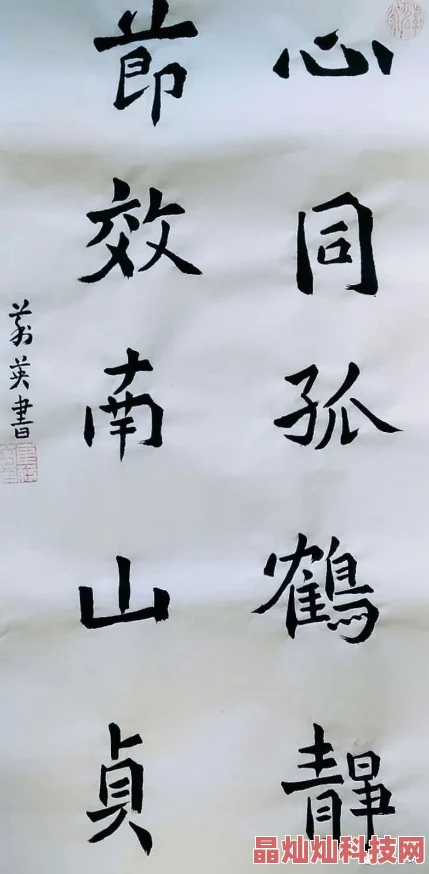 心同孤鶴靜
節效南山貞
英書
晶灿灿科技网